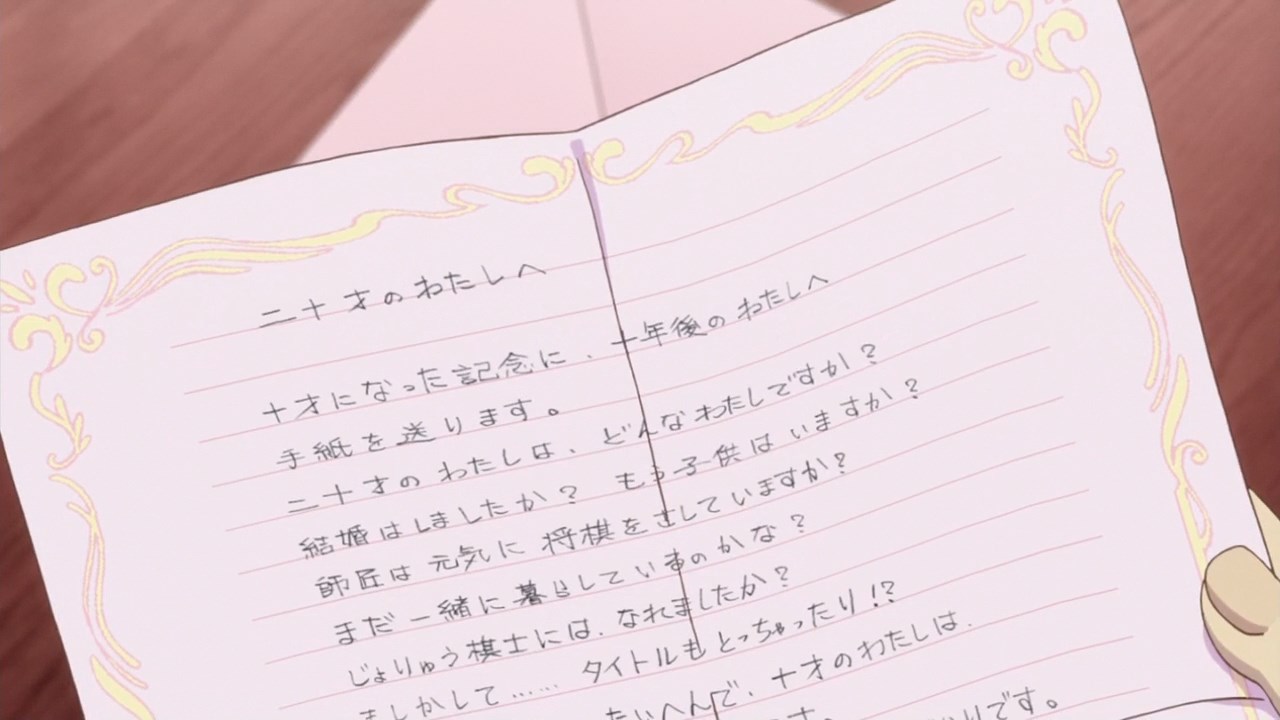 二十才のわたしへ
十才になった記念に、十年後のわたしへ
手紙を送ります。
二十才のわたしは、どんなわたしですか？
結婚はしましたか？ もう子供はいますか？
師匠は元気に将棋をさしていますか？
まだ一緒に暮らしているのかな？
じょりゅう棋士には、なれましたか？
もしかして…… タイトルもとっちゃったり!?
たいへんで、十才のわたしは、
です。